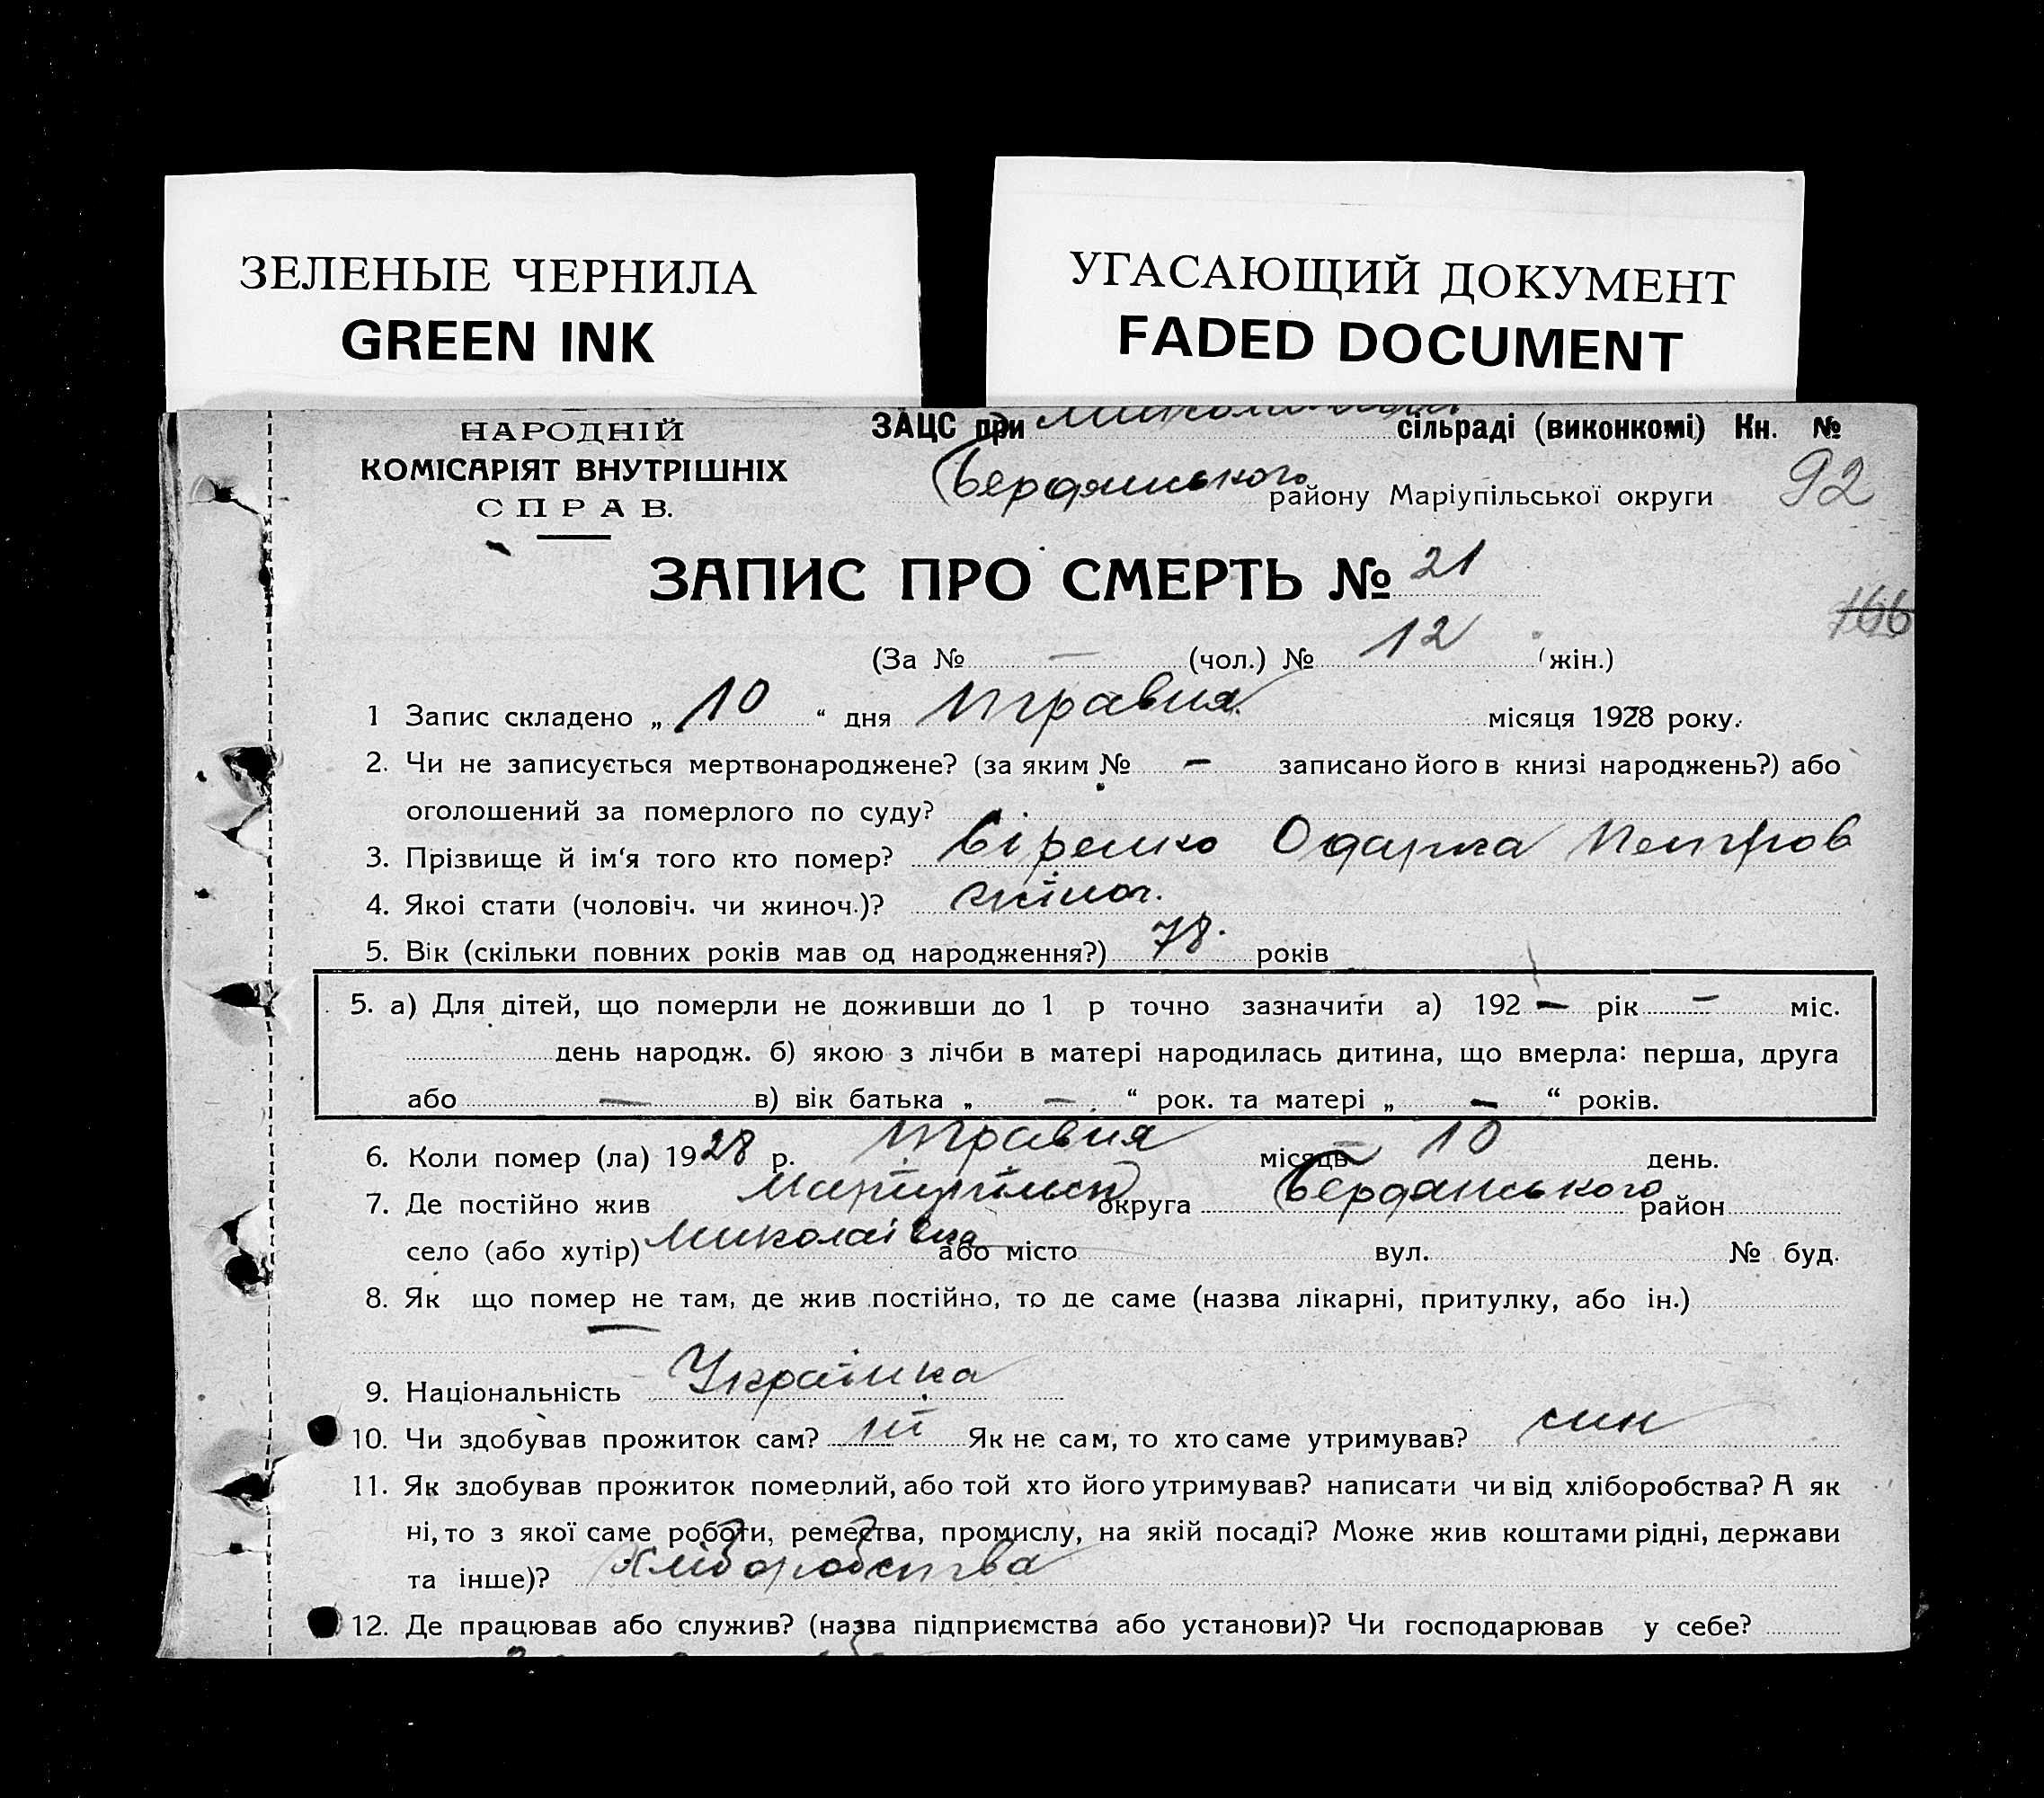 ЗЕЛЕНЫЕ ЧЕРНИЛА
GREEN INK
УГАСАЮЩИЙ ДОКУМЕНТ
FADED DOCUMENT
НАРОДНІЙ
КОМІСАРІЯТ ВНУТРІШНІХ
СПРАВ.
ЗАЦС при сільраді (виконкомі) Кн. №
Бердянського району Маріупільської округи 92
ЗАПИС ПРО СМЕРТЬ № 21
166
(За № — (чол.) № 12 (жін.)
1 Запис складено „ 10 “ дня травня місяця 1928 року.
2. Чи не записується мертвонароджене? (за яким № — записано його в книзі народжень?) або
оголошений за померлого по суду?
3. Прізвище й ім‘я того кто помер? Віренко Одарка Петров
4. Якоі стати (чоловіч. чи жиноч.)? жіноч.
5. Вік (скільки повних років мав од народження?) 78. років
5. а) Для дітей, що померли не доживши до 1 р точно зазначити а) 192 — рік — міс.
день народж. б) якою з лічби в матері народилась дитина, що вмерла: перша, друга
або — в) вік батька „ — “ рок. та матері „ — “ років.
6. Коли помер (ла) 1928 р. травня місяць 10 день.
7. Де постійно жив Маріупільськ округа Бердянського район
село (або хутір) Миколаівка або місто вул. № буд.
8. Як що помер не там, де жив постійно, то де саме (назва лікарні, притулку, або ін.)
—
9. Національність Українка
10. Чи здобував прожиток сам? ні Як не сам, то хто саме утримував? син
11. Як здобував прожиток померлий, або той хто його утримував? написати чи від хліборобства? А як
ні, то з якої саме роботи, ремества, промислу, на якій посаді? Може жив коштами рідні, держави
та інше)? хліборобства
12. Де працював або служив? (назва підприємства або установи)? Чи господарював у себе?